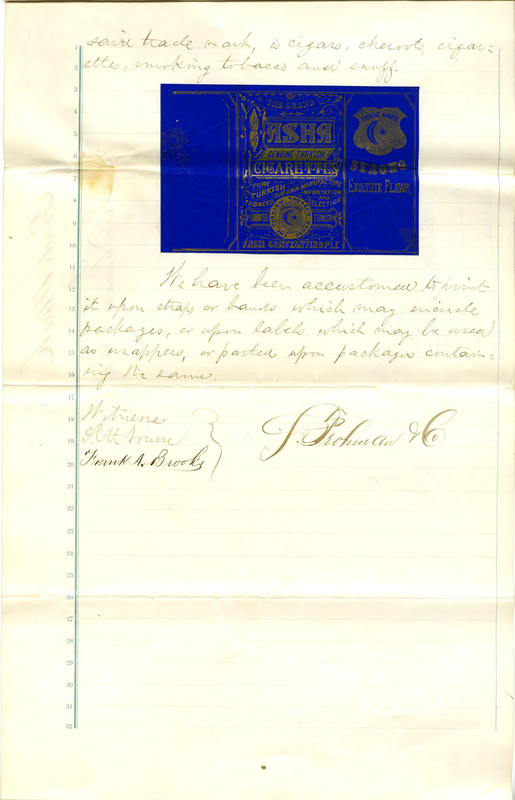 said trade mark, is cigars, cheroots, cigar=
ettes, smoking tobacco and snuff.
THE GRAND
PASHA
GENUINE TURKISH
CIGARETTES
PURE
TURKISH
TOBACCO
OUR OWN MANUFACTURE
IMPORTATION
AND
SELECTION
TURKISH
FROM CONSTANTINOPLE
TRADE MARK
STRONG
EXQUISITE FLAVOR
We have been accustomed to print
it upon straps or bands which may encircle
packages, or upon labels which may be used
as wrappers, or pasted upon packages contain=
ing the same.
Witnesses
Frank A. Brooks
J. Prohman & Co
1
2
3
4
5
6
7
8
9
10
11
12
13
14
15
16
17
18
19
20
21
22
23
24
25
26
27
28
29
30
31
32